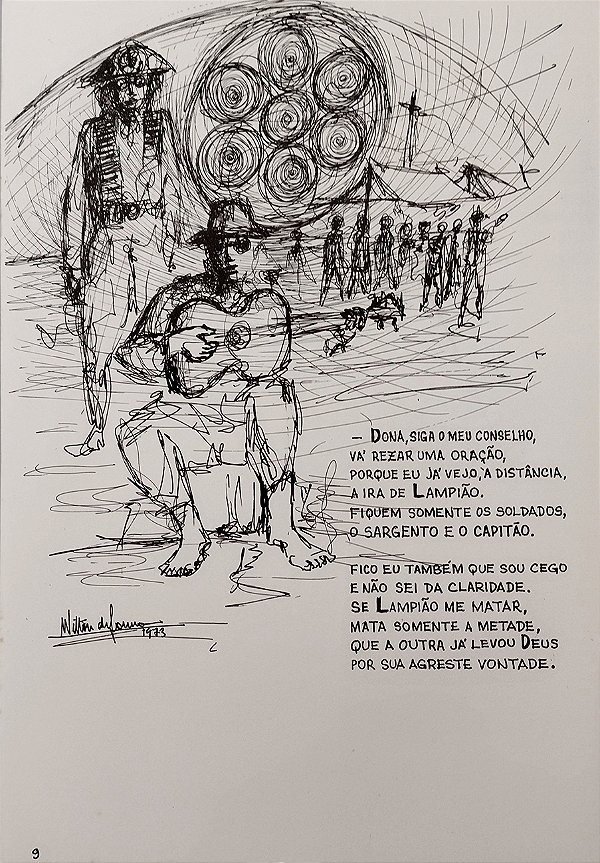 — DONA, SIGA O MEU CONSELHO,
VÁ REZAR UMA ORAÇÃO,
PORQUE EU JÁ VEJO, À DISTÂNCIA,
A IRA DE LAMPIÃO.
FIQUEM SOMENTE OS SOLDADOS,
O SARGENTO E O CAPITÃO.
FICO EU TAMBÉM QUE SOU CEGO
E NÃO SEI DA CLARIDADE.
SE LAMPIÃO ME MATAR,
MATA SOMENTE A METADE,
QUE A OUTRA JÁ LEVOU DEUS
POR SUA AGRESTE VONTADE.
1973
9